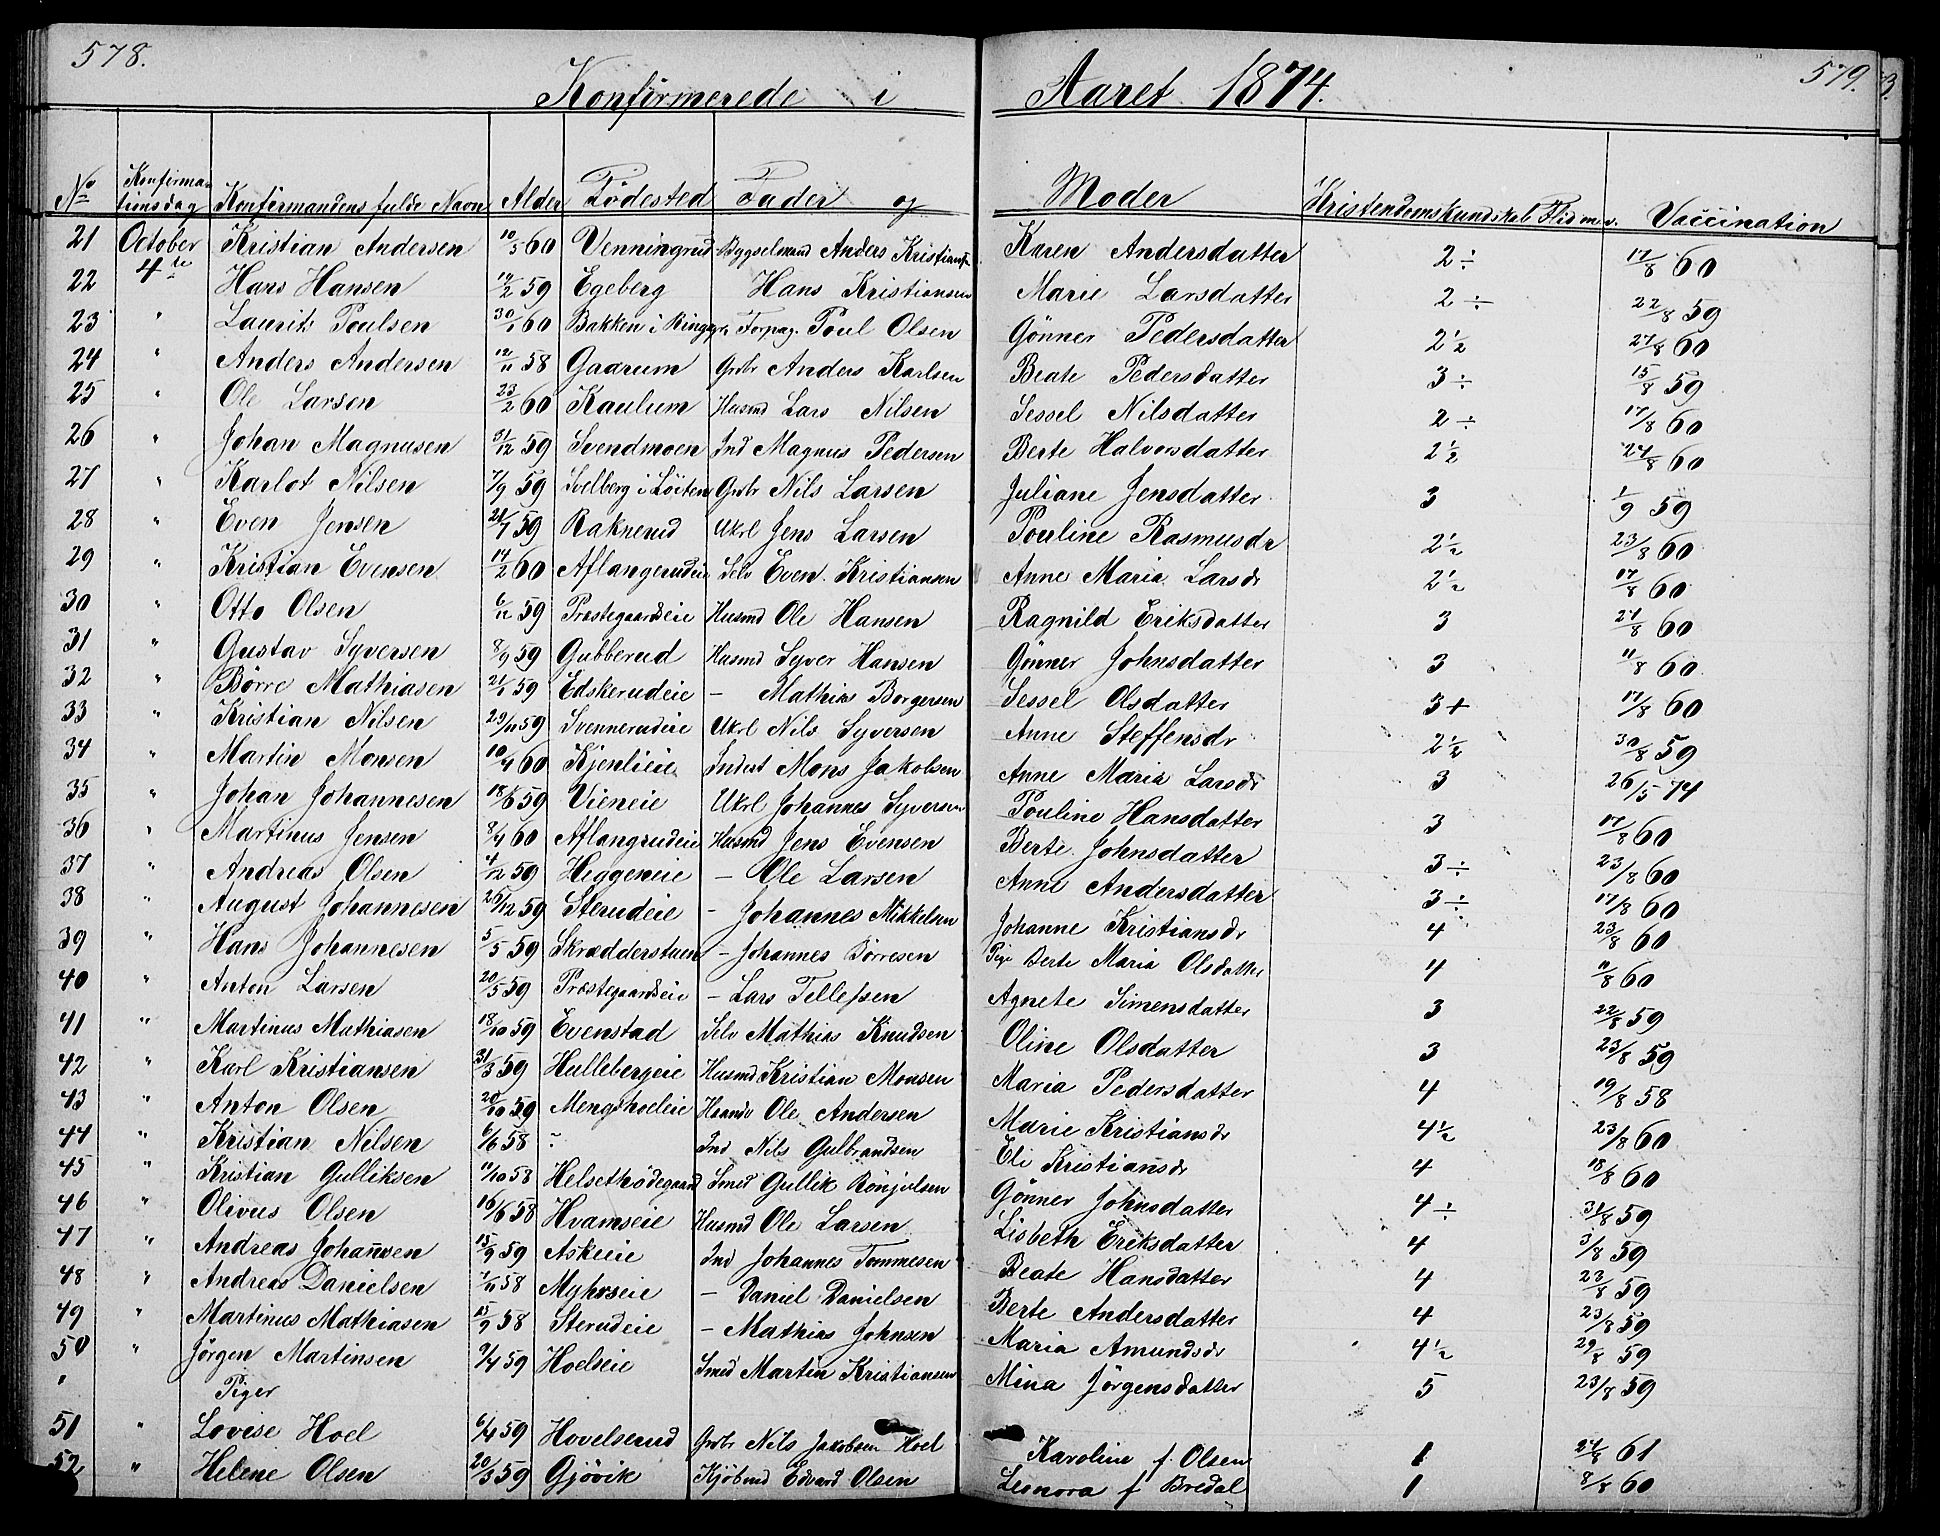 578.
Konfirmerede i Aaret 1874.
579.
No Konfirmationsdag Konfirmandens fulde Navn Alder Födested Fader og Moder Kristendomskundskab Flid m.v. Vaccination
21 October Kristian Andersen 10/5 60 Venningrud Bygselmand Anders Kristians. Karen Andersdatter 2÷ 17/8 60
22 4de Hans Hansen 12/2 59 Egeberg Hans Kristiansen Marie Larsdatter 2÷ 22/8 59
23 " Laurits Poulsen 30/1 60 Bakken i Ringgr. Forpag. Poul Olsen Gönner Pedersdatter 2½ 27/8 60
24 " Anders Andersen 12/11 58 Gaarum Grbr Anders Karlsen Beate Pedersdatter 3÷ 15/8 59
25 " Ole Larsen 23/2 60 Kaulum Husmd Lars Nilsen Sessel Nilsdatter 2÷ 17/8 60
26 " Johan Magnusen 31/12 59 Svendmoen Ind Magnus Pedersen Berte Halvorsdatter 2½ 24/8 60
27 " Karlot Nilsen 7/9 59 Svelberg i Löiten Grbr Nils Larsen Juliane Jensdatter 3 1/9 59
28 " Even Jensen 21/7 59 Raknerud Ukrl Jens Larsen Pouline Rasmusdr 2½ 23/8 60
29 " Kristian Evensen 14/2 60 Aflangerudeie Selv Even Kristiansen Anne Maria Larsdr 2½ 17/8 60
30 " Otto Olsen 6/12 59 Præstegaardseie Husmd Ole Hansen Ragnild Eriksdatter 3 21/8 60
31 " Gustav Syversen 8/9 59 Gubberud Husmd Syver Hansen Gönner Johnsdatter 3 11/8 60
32 " Börre Mathiasen 21/6 59 Edskerudeie - Mathias Borgersen Sessel Olsdatter 3+ 17/8 60
33 " Kristian Nilsen 29/11 59 Svennerudeie Ukrl Nils Syversen Anne Steffensdr 2½ 30/8 59
34 " Martin Monsen 10/4 60 Kjenlieie Inderst Mons Jakobsen Anne Maria Larsdr 3 26/5 74
35 " Johan Johannesen 18/6 59 Vieneie Ukrl Johannes Syversen Pouline Hansdatter 3 17/8 60
36 " Martinus Jensen 8/4 60 Aflangrudeie Husmd Jens Evensen Berte Johnsdatter 3÷ 23/8 60
37 " Andreas Olsen 4/12 59 Heggeneie - Ole Larsen Anne Andersdatter 3÷ 17/8 60
38 " August Johannesen 26/12 59 Sterudeie - Johannes Mikkelsen Johanne Kristiansdr 4 23/8 60
39 " Hans Johannesen 5/5 59 Skrædderstuen - Johannes Börresen Pige Berte Maria Olsdatter 4 11/8 60
40 " Anton Larsen 20/5 59 Præstegaardseie - Lars Tellefsen Agnete Simensdatter 3 22/8 59
41 " Martinus Mathiasen 18/10 59 Evenstad Selv Mathias Knudsen Oline Olsdatter 3 23/8 59
42 " Karl Kristiansen 31/3 59 Hullebergeie Husmd Kristian Monsen Maria Pedersdatter 4 19/8 58
43 " Anton Olsen 20/10 59 Mengshoeleie Haandv Ole Andersen Marie Kristiansdr 4½ 23/8 60
44 " Kristian Nilsen 6/6 58 - Ind Nils Gulbrandsen Eli Kristiansdr 4 18/8 60
45 " Kristian Gulliksen 11/10 58 Helsethödegaard Smed Gullik Rönjulsen Gönner Johnsdatter 4÷ 31/8 59
46 " Olivus Olsen 16/6 58 Hvamseie Husmd Ole Larsen Lisbeth Eriksdatter 4 3/8 59
47 " Andreas Johannesen 15/9 59 Askeie Ind Johannes Tommesen Beate Hansdatter 4 23/8 59
48 " Andreas Danielsen 1/11 58 Myhrseie - Daniel Danielsen Berte Andersdatter 4 23/8 59
49 " Martinus Mathiasen 15/9 58 Sterudeie - Mathias Johnsen Maria Amundsdr 4½ 29/8 59
50 " Jörgen Martinsen 9/4 59 Hoelseie Smed Martin Kristiansen Mina Jörgensdatter 5 23/8 59
" Piger
51 " Lovise Hoel 6/4 59 Hovelserud Grbr Nils Jakobsen Hoel Karoline f. Olsen 1 21/8 61
52 " Helene Olsen 20/3 59 Gjövik Kjöbmd Edvard Olsen Leonora f Bredal 1 8/8 60